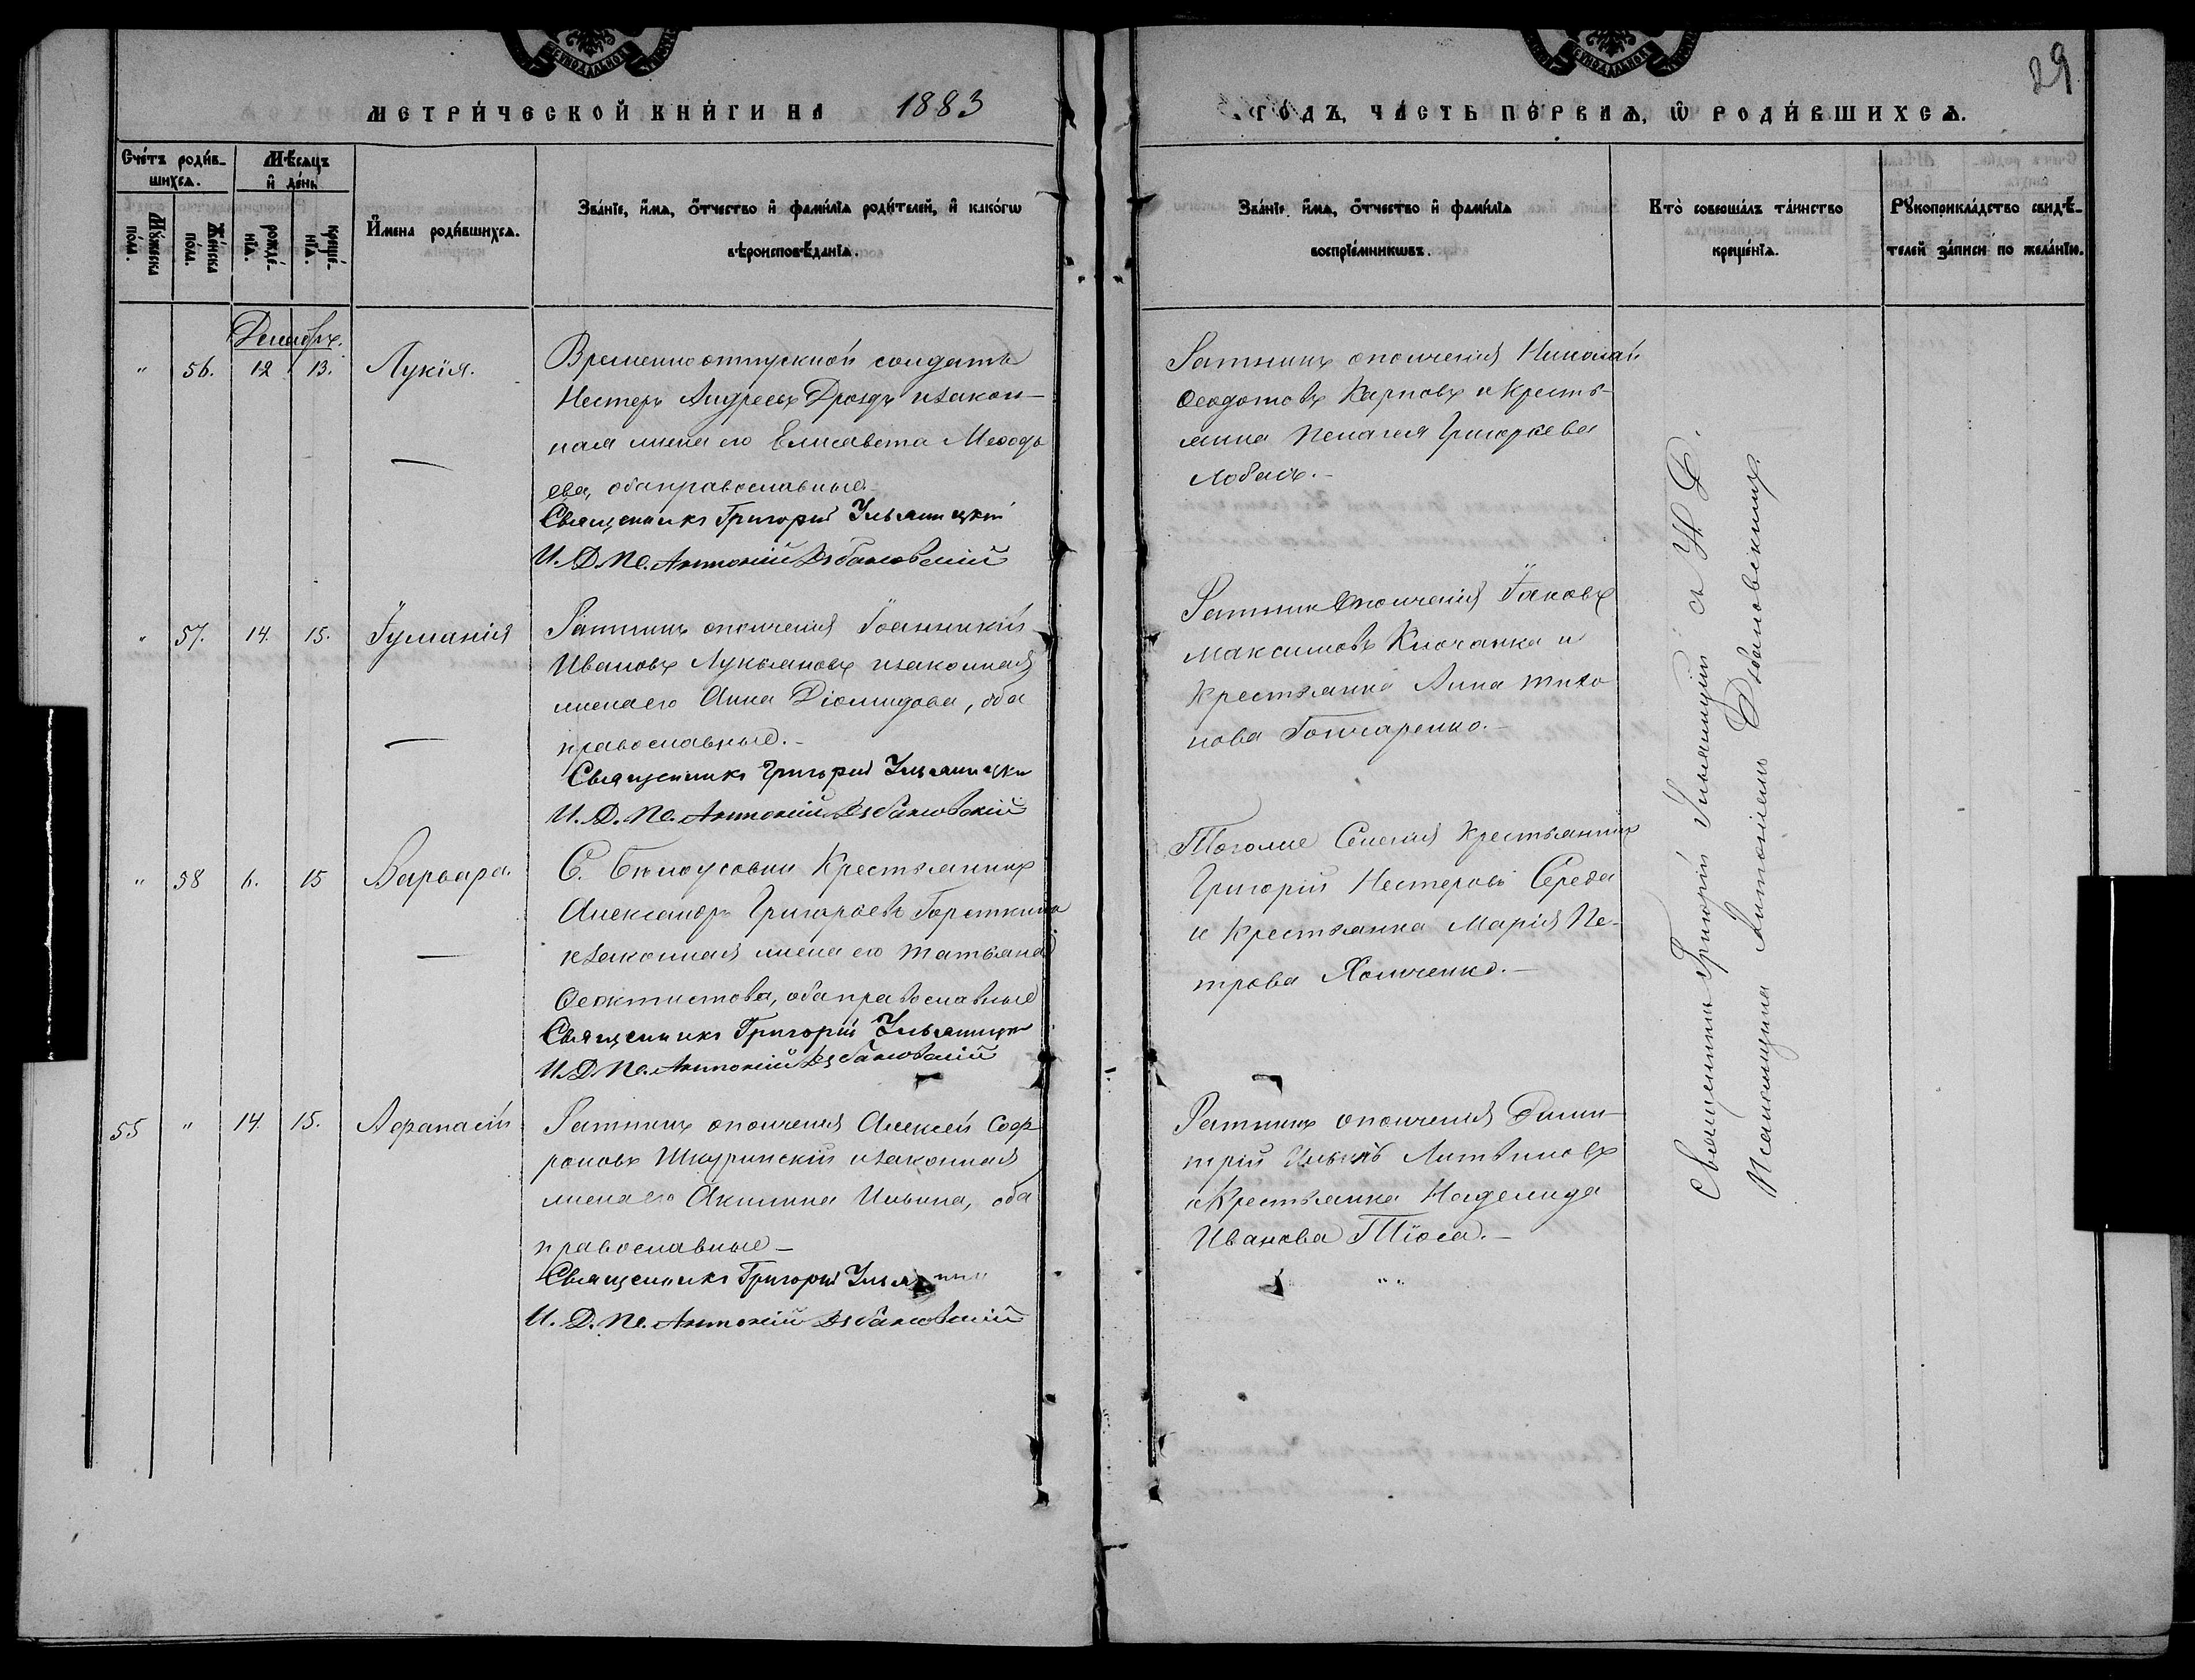 МЕТРИ́ЧЕСКОЙ КНИ́ГИ НА 1883
ГО́ДЪ, ЧА́СТЬ ПЕ́РВАѦ, Ѡ РОДИ́ВШИХСѦ.
29
Сче́тъ роди́в-
шихсѧ.
Мѣ́сѧцъ
и҆ де́нь
Мꙋ́жеска
по́ла.
Же́нска
по́ла.
рожде́-
нїѧ.
креще́-
нїѧ.
И҆мена роди́вшихсѧ.
Зва́нїе, и҆́мѧ, ѻ҆́тчество и҆ фами́лїѧ роди́телей, и҆ како́гѡ
вѣроисповѣ́данїѧ.
Зва́нїе, и҆́мѧ, ѻ҆́тчество и҆ фами́лїѧ
воспрїе́мникѡвъ.
Кто̀ соверша́лъ та́инство
креще́нїѧ.
Рꙋкоприкла́дство свидѣ́-
телей за́писи по жела́нїю.
Декабрь.
" 56. 12 13. Лукія.
Временно отпускной солдатъ
Нестеръ Андреевъ Дроздъ и закон-
ная жена его Елисавета Меѳодь
ева, оба православные.
Священникъ Григорій Ульяницкій
И. Д. Пс. Антоній Дзбановскій
Ратникъ ополченія Николай
Ѳеодотовъ Карповъ и Кресть-
янка Пелагея Григорьева
Лобасъ.-
" 57. 14. 15. Іуліанія
Ратникъ ополченія Іоанникій
Ивановъ Лукьяновъ и законная
жена его Анна Діомидова, оба
православные.-
Священникъ Григорій Ульяницкій
И. Д. Пс. Антоній Дзбановскій
Ратникъ ополченія Іаковъ
Максимовъ Ключанка и
Крестьянка Анна Тихо
нова Гончаренко.-
" 58 6. 15 Варвара.
С. Бѣлоусовки Крестьянинъ
Александръ Григорьевъ
и законная жена его Татьяна
Ѳеоктистова, оба православные
Священникъ Григорій Ульяницкій
И. Д. Пс. Антоній Дзбановскій
Того же Селенія Крестьянинъ
Григорій Нестеровъ Середа
и Крестьянка Марія Пе-
трова Хомченко.-
55 " 14. 15. Аѳанасій
Ратникъ ополченія Алексей Соф
роновъ Шкуринскій и законная
жена его Акилина Ильина, оба
православные-
Священникъ Григорій
И. Д. Пс. Антоній Дзбановскій
Ратникъ ополченія Дими-
трій Литвиновъ
и Крестьянка Надежда
Иванова
Священникъ Григорій Ульяницкій съ И. Д.
Псаломщика Антоніемъ Дзбановскимъ.